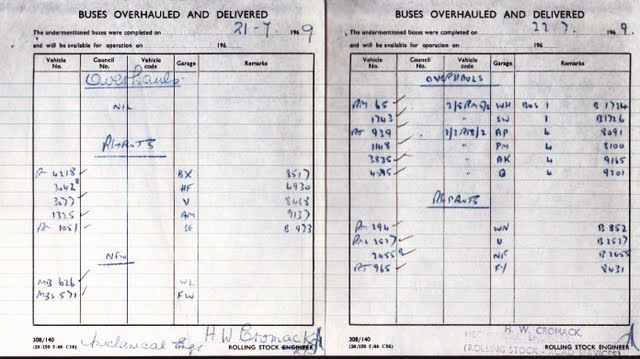 BUSES OVERHAULED AND DELIVERED
The undermentioned buses were completed on 21-7. 1969
and will be available for operation on 196
Vehicle No. Council No. Vehicle code Garage Remarks
Overhauls
NIL
REPAINTS
RT 4218 BX 8517
3042 HF 4930
3577 V 8468
1325 AM 9137
RM 1051 SE B 973
NEW
MB 626 WL
MBS 571 FW
308/140
(20/150 5/66 C10)
Mechanical Eng. H W Cromack ROLLING STOCK ENGINEER
BUSES OVERHAULED AND DELIVERED
The undermentioned buses were completed on 22.7. 1969.
and will be available for operation on 196
Vehicle No. Council No. Vehicle code Garage Remarks
OVERHAULS
RM 65 2/5RM5/2 WH BOS 1 B 1724
1743 " SW 1 B1726
RT 939 AP 4 8091
1148 " PM 4 8100
3835 " AK 4 9165
4395 " Q 4 9201
REPAINTS
RM 294 WN B 852
2527 U B 2527
2455 NF B 2455
RT 965 FY 8431
308/140
(20/150 5/66 C10)
H. W. CROMACK.
ROLLING STOCK ENGINEER